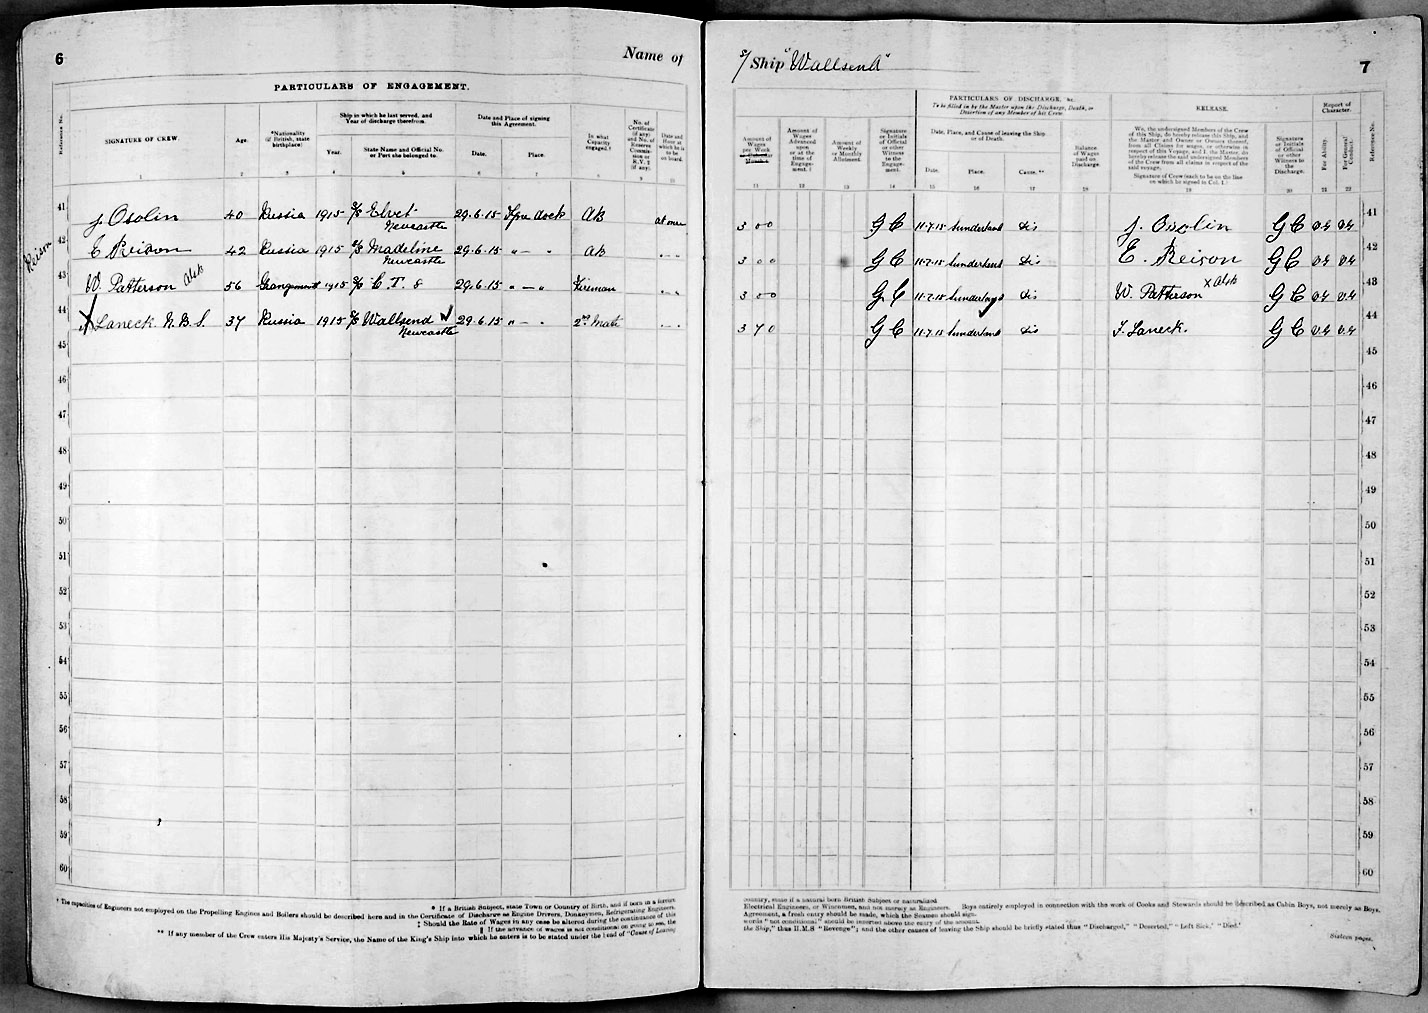 6
Name of
PARTICULARS OF ENGAGEMENT.
Reference No.
SIGNATURE OF CREW.
Age.
*Nationality (if British, state birthplace)
Ship in which he last served, and Year of discharge therefrom.
Year.
State Name and Official No. or Port she belonged to.
Date and Place of signing this Agreement.
Date.
Place.
In what Capacity engaged.†
No. of Certificate (if any) and No. of Reserve Commission or R.V.2 (if any).
Date and Hour at which he is to be on board.
1 2 3 4 5 6 7 8 9 10
41 J. Osolin 40 Russia 1915 S/S Elvet Newcastle 29.6.15 Tyne dock AB at once
Reison
42 E Reison 42 Russia 1915 S/S Madeline Newcastle 29.6.15 " — " AB " - "
43 W. Patterson 56 Grangemouth 1915 29.6.15 " — " Fireman " - "
44 X Laneck N.B.S. 37 Russia 1915 S/S Wallsend Newcastle 29.6.15 " — " 2nd Mate " - "
45
46
47
48
49
50
51
52
53
54
55
56
57
58
59
60
† The capacities of Engineers not employed on the Propelling Engines and Boilers should be described here and in the Certificate of Discharge as Engine Drivers, Donkeymen, Refrigerating Engineers,
* If a British Subject, state Town or Country of Birth, and if born in a foreign
‡ Should the Rate of Wages in any case be altered during the continuance of this
|| If the advance of wages is not conditional on going to sea, the
** If any member of the Crew enters His Majesty's Service, the Name of the King's Ship into which he enters is to be stated under the head of "Cause of Leaving
S/Ship "Wallsend"
7
PARTICULARS OF DISCHARGE, &c.
To be filled in by the Master upon the Discharge, Death, or Desertion of any Member of his Crew
RELEASE.
Report of Character.
Amount of Wages per Week
Amount of Wages Advanced upon or at the time of Engagement.‡
Amount of Weekly or Monthly Allotment.
Signature or Initials of Official or other Witness to the Engagement.
Date, Place, and Cause of leaving the Ship or of Death.
Date.
Place.
Cause.**
Balance of Wages paid on Discharge.
We, the undersigned Members of the Crew of this Ship, do hereby release this Ship, and the Master and Owner or Owners thereof, from all Claims for wages, or otherwise in respect of this Voyage, and I, the Master, do hereby release the said undersigned Members of the Crew from all claims in respect of the said voyage.
Signature of Crew (each to be on the line on which he signed in Col. 1.)
Signature or Initials of Official or other Witness to the Discharge.
For Ability.
For General Conduct.
Reference No.
11 12 13 14 15 16 17 18 19 20 21 22
3 0 0 G C 11.7.15 Sunderland dis J. Osolin G C V.G V.G 41
3 0 0 G C 11.7.15 Sunderland dis E. Reison G C V.G V.G 42
3 0 0 G C 11.7.15 Sunderland dis W. Patterson G C V.G V.G 43
3 7 0 G C 11.7.15 Sunderland dis Laneck. G C V.G V.G 44
45
46
47
48
49
50
51
52
53
54
55
56
57
58
59
60
country, state if a natural born British Subject or naturalized
Electrical Engineers, or Winchmen, and not merely as Engineers. Boys entirely employed in connection with the work of Cooks and Stewards should be described as Cabin Boys, not merely as Boys.
Agreement, a fresh entry should be made, which the Seamen should sign.
words "not conditional" should be inserted above the entry of the amount.
the Ship," thus H.M.S "Revenge"; and the other causes of leaving the Ship should be briefly stated thus "Discharged," "Deserted," "Left Sick," "Died."
Sixteen pages.